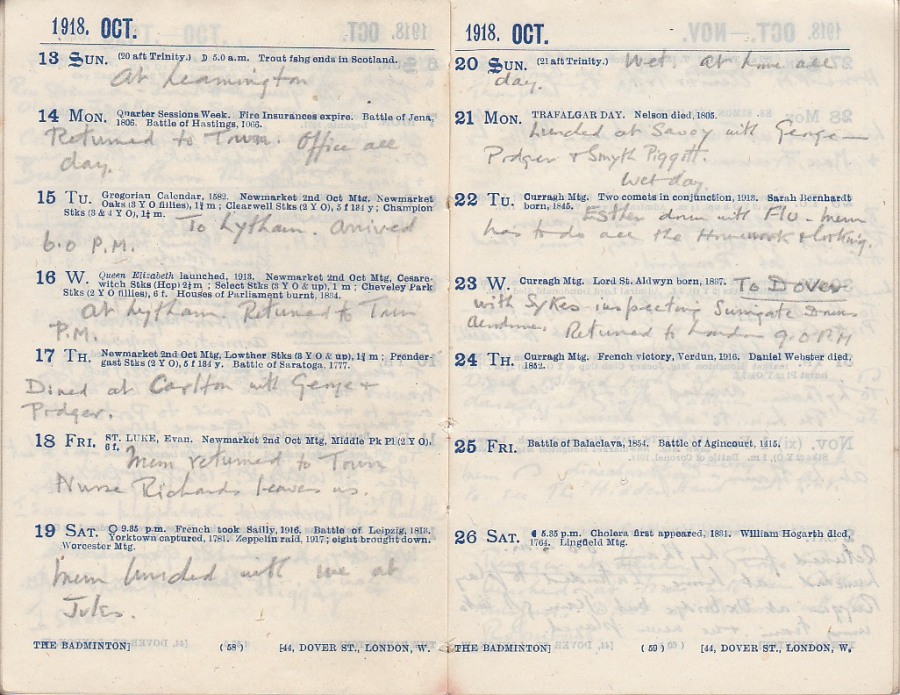 1918. OCT.
13 SUN. (20 aft Trinity.) ☽ 5.0 a.m. Trout fshg ends in Scotland.
At Leamington
14 MON. Quarter Sessions Week. Fire Insurances expire. Battle of Jena,
1806. Battle of Hastings, 1066.
Returned to Town. Office all
day.
15 TU. Gregorian Calendar, 1582. Newmarket 2nd Oct Mtg. Newmarket
Oaks (3 Y O fillies), 1¼ m; Clearwell Stks (2 Y O), 5 f 134 y; Champion
Stks (3 & 4 Y O), 1¼ m.
To Lytham. Arrived
6.0 P.M.
16 W. Queen Elizabeth launched, 1913. Newmarket 2nd Oct Mtg, Cesare-
witch Stks (Hcp) 2¼ m; Select Stks (3 Y O & up), 1 m; Cheveley Park
Stks (2 Y O fillies), 6 f. Houses of Parliament burnt, 1834.
At Lytham Returned to Town
P.M.
17 TH. Newmarket 2nd Oct Mtg, Lowther Stks (3 Y O & up), 1¼ m; Prender-
gast Stks (2 Y O), 5 f 134 y. Battle of Saratoga, 1777.
Dined at Carlton with George +
Podger.
18 FRI. ST. LUKE, Evan. Newmarket 2nd Oct Mtg, Middle Pk Pl (2 Y O),
6 f.
Mem returned to Town
Nurse Richards leaves us.
19 SAT. 9.35 p.m. French took Sailly, 1916. Battle of Leipzig, 1813.
Yorktown captured, 1781. Zeppelin raid, 1917; eight brought down.
Worcester Mtg.
Mem lunched with me at
Jules.
THE BADMINTON] (58) [44, DOVER ST., LONDON, W.
1918. OCT.
20 SUN. (21 aft Trinity.) Wet. At home all
day.
21 MON. TRAFALGAR DAY. Nelson died, 1805.
Lunched at Savoy with George
Podger + Smyth Piggott.
Wet day.
22 TU. Curragh Mtg. Two comets in conjunction, 1913. Sarah Bernhardt
born, 1845. Esther down with Flu. Mem
has to do all the Housework + cooking.
23 W. Curragh Mtg. Lord St. Aldwyn born, 1837. To Dover
with Sykes inspecting Swingate Downs
Aerodrome. Returned to London 9.0 P.M
24 TH. Curragh Mtg. French victory, Verdun, 1916. Daniel Webster died,
1852.
25 FRI. Battle of Balaclava, 1854. Battle of Agincourt, 1415.
26 SAT. 5.35 p.m. Cholera first appeared, 1831. William Hogarth died,
1764. Lingfield Mtg.
THE BADMINTON] (59) [44, DOVER ST., LONDON, W.